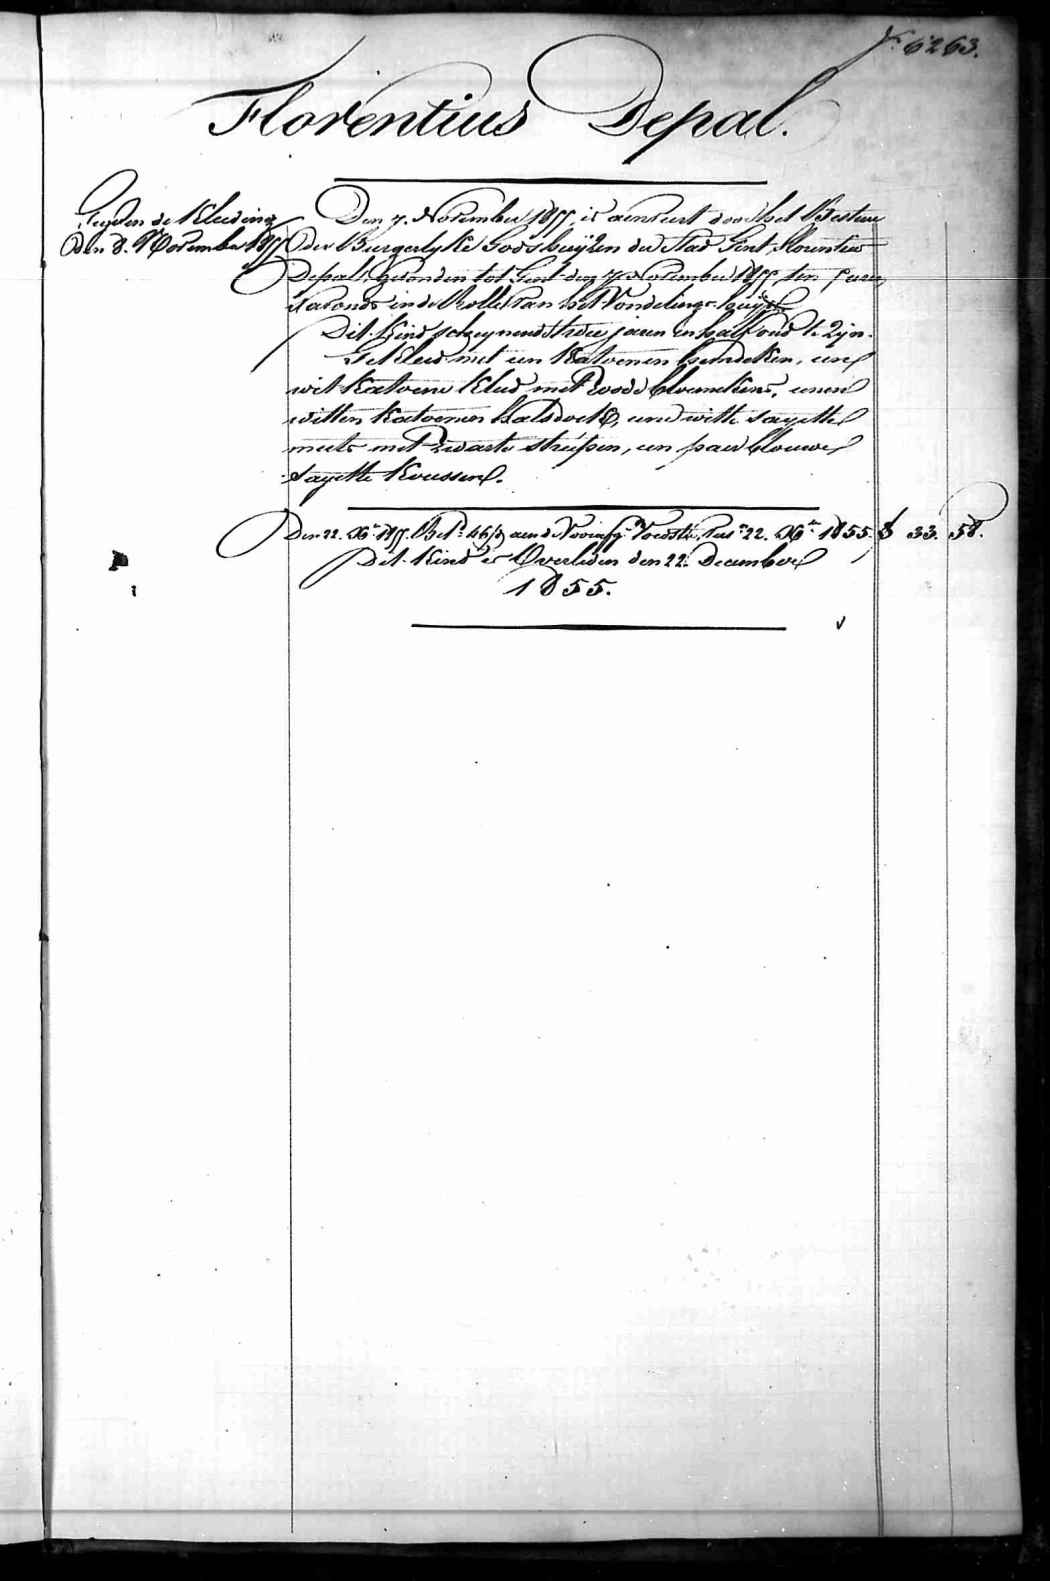 N.º 6263.
Florentius Depal.
de Kleeding
den 8. November 1855
Den 7. November 1855, is aenveirt door het Bestuur
der Burgerlyke Godshuyzen der Stad Gent, Florentius
Depal, gevonden tot Gent den 7 November 1855 ten
s'avonds in de Rolle van het Vondelings-huijs
Dit Kind schynende twee jaeren en half oud te zijn.
Gekleed met een katoenen hemdeken, een
wit katoene kleed met roode bloemkens, eenen
witten katoenen halsdoek, eene witte sayette
muts met zwarte streepen, een paer blouwe
sayette koussen.
Den 22. Xb.re 1855. Bet.d aen de Voedst. 22. Xb.re 1855. 33. 58.
Dit Kind is Overleden den 22. December
1855.